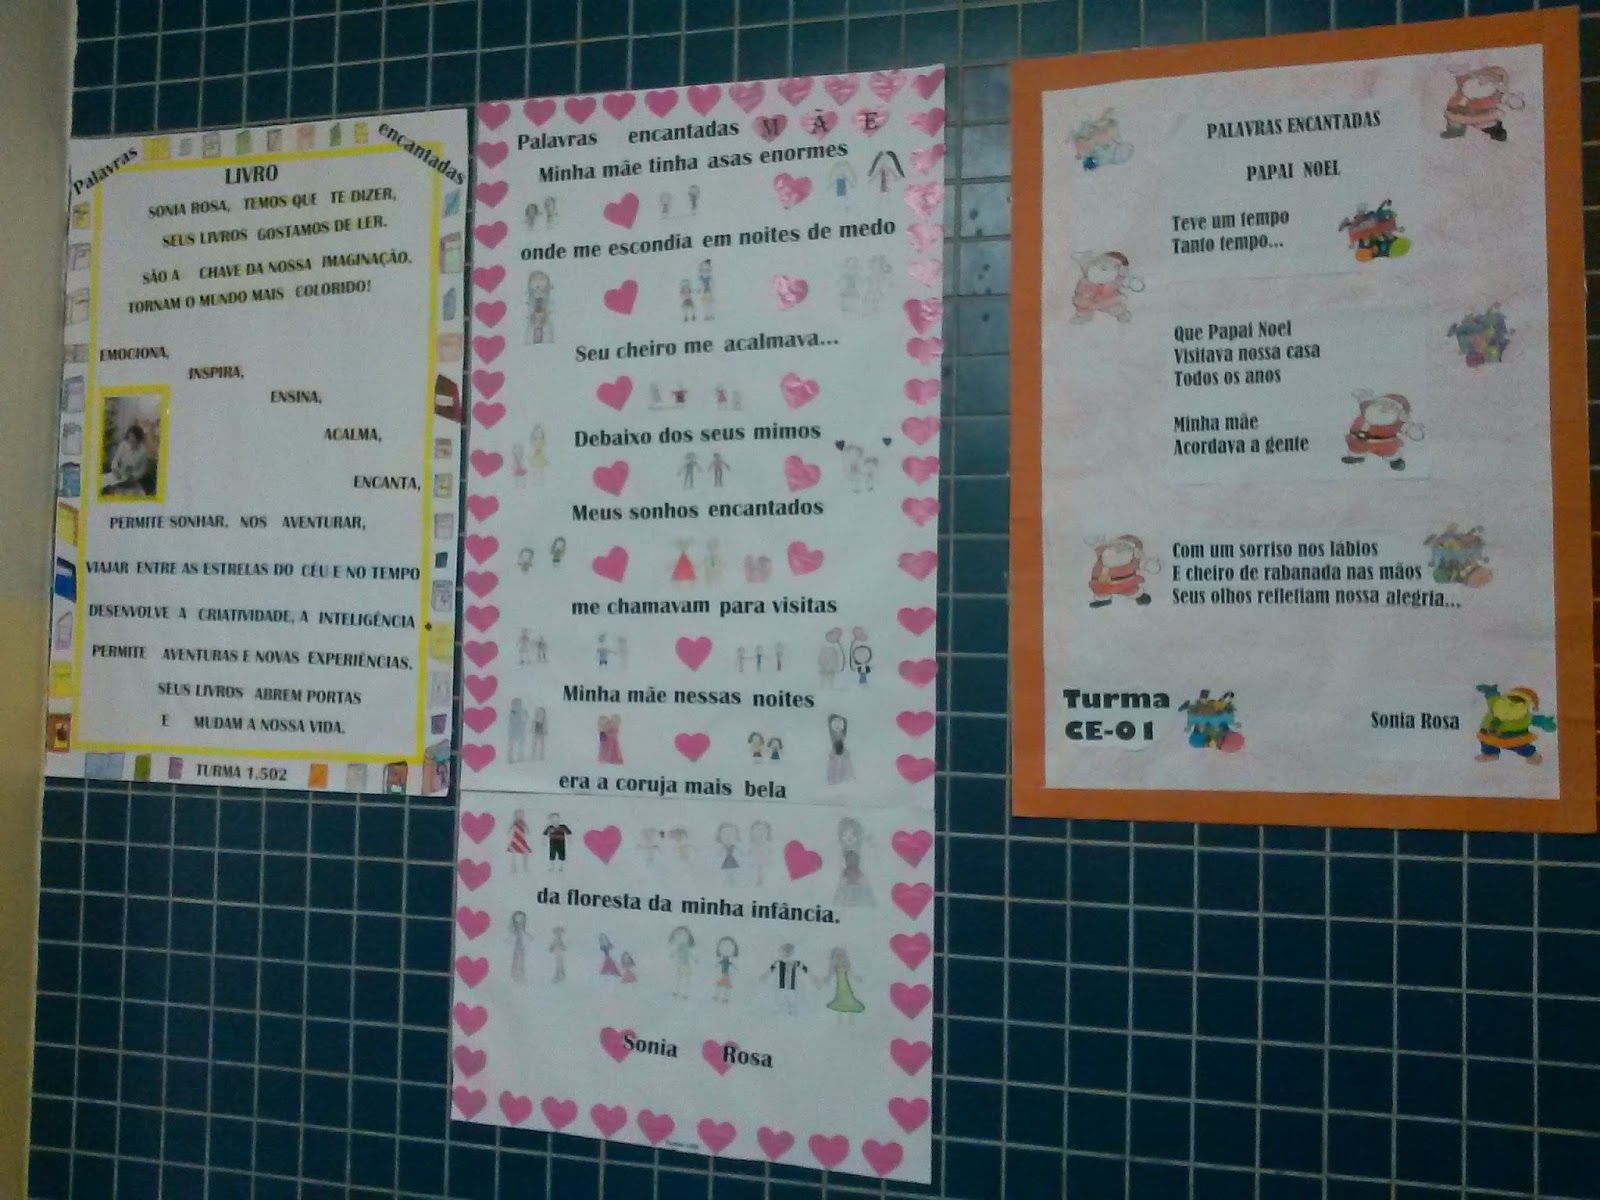 Palavras encantadas
LIVRO
SONIA ROSA, TEMOS QUE TE DIZER,
SEUS LIVROS GOSTAMOS DE LER.
SÃO A CHAVE DA NOSSA IMAGINAÇÃO.
TORNAM O MUNDO MAIS COLORIDO!
EMOCIONA,
INSPIRA,
ENSINA,
ACALMA,
ENCANTA,
PERMITE SONHAR, NOS AVENTURAR,
VIAJAR ENTRE AS ESTRELAS DO CÉU E NO TEMPO
DESENVOLVE A CRIATIVIDADE, A INTELIGÊNCIA
PERMITE AVENTURAS E NOVAS EXPERIÊNCIAS.
SEUS LIVROS ABREM PORTAS
E MUDAM A NOSSA VIDA.
TURMA 1.502
Palavras encantadas MÃE
Minha mãe tinha asas enormes
onde me escondia em noites de medo
Seu cheiro me acalmava...
Debaixo dos seus mimos
Meus sonhos encantados
me chamavam para visitas
Minha mãe nessas noites
era a coruja mais bela
da floresta da minha infância.
Sonia Rosa
PALAVRAS ENCANTADAS
PAPAI NOEL
Teve um tempo
Tanto tempo...
Que Papai Noel
Visitava nossa casa
Todos os anos
Minha mãe
Acordava a gente
Com um sorriso nos lábios
E cheiro de rabanada nas mãos
Seus olhos refletiam nossa alegria...
Turma
CE-01
Sonia Rosa